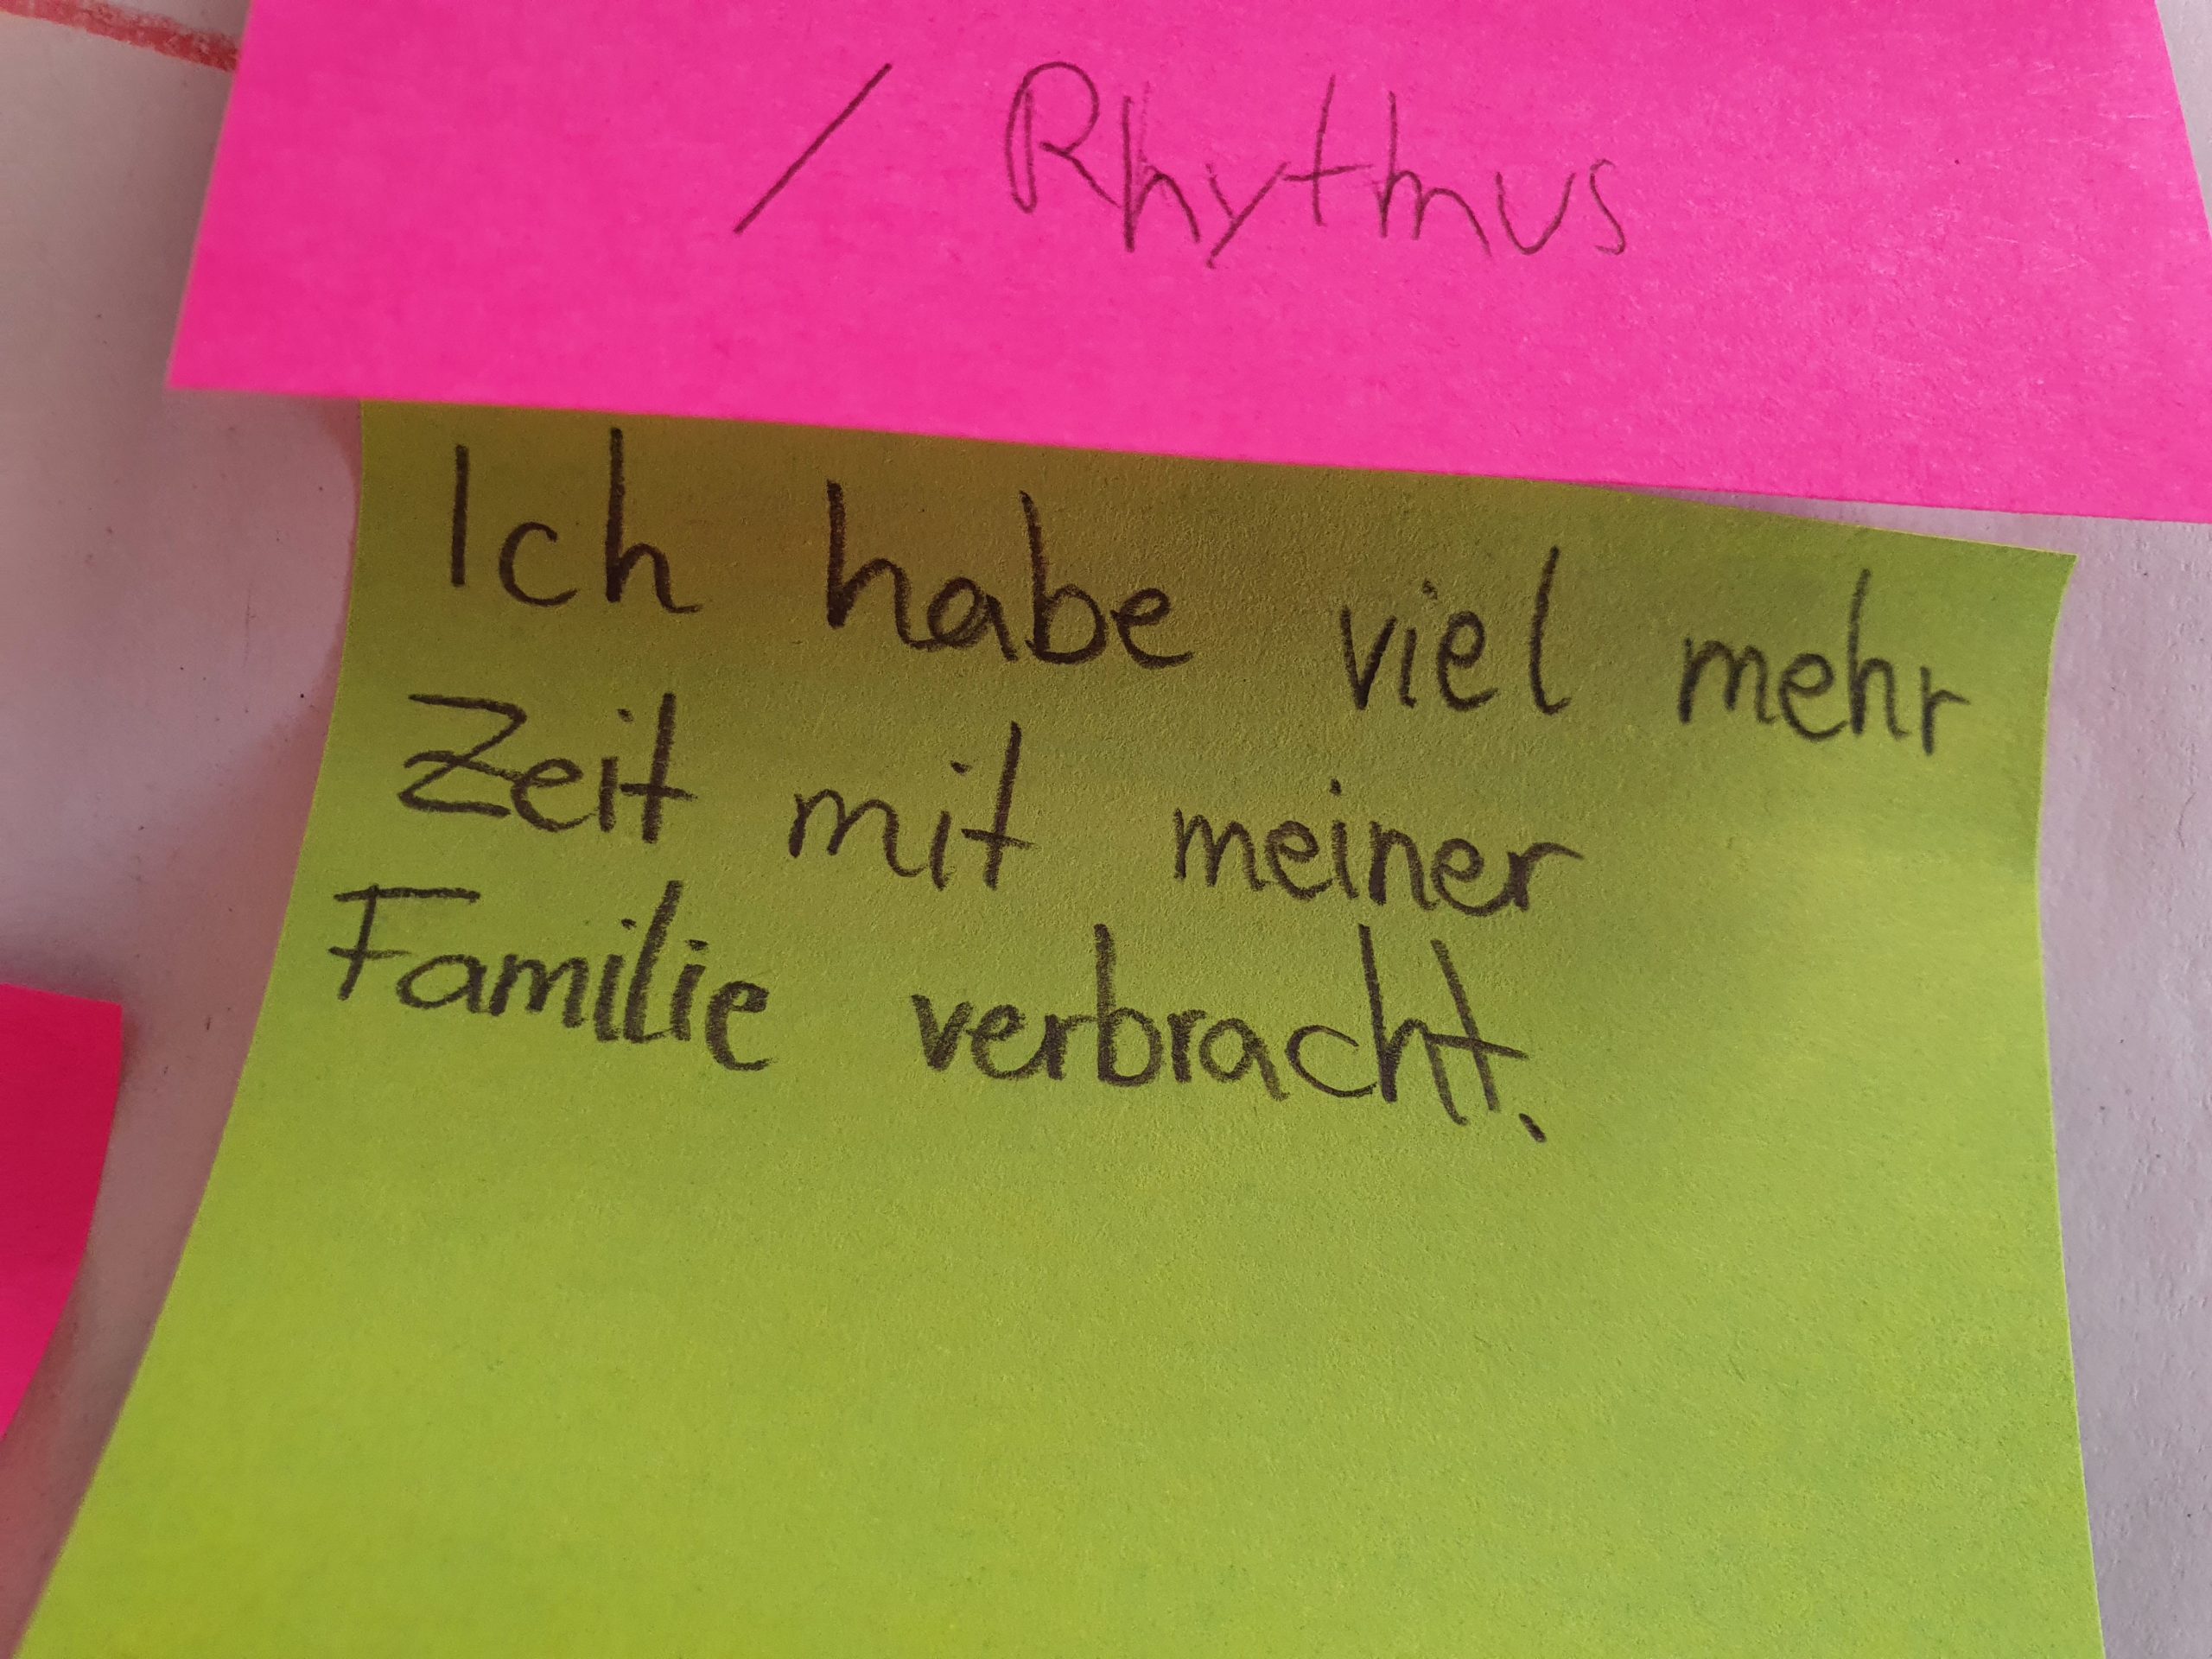 / Rhythmus
Ich habe viel mehr
Zeit mit meiner
Familie verbracht.